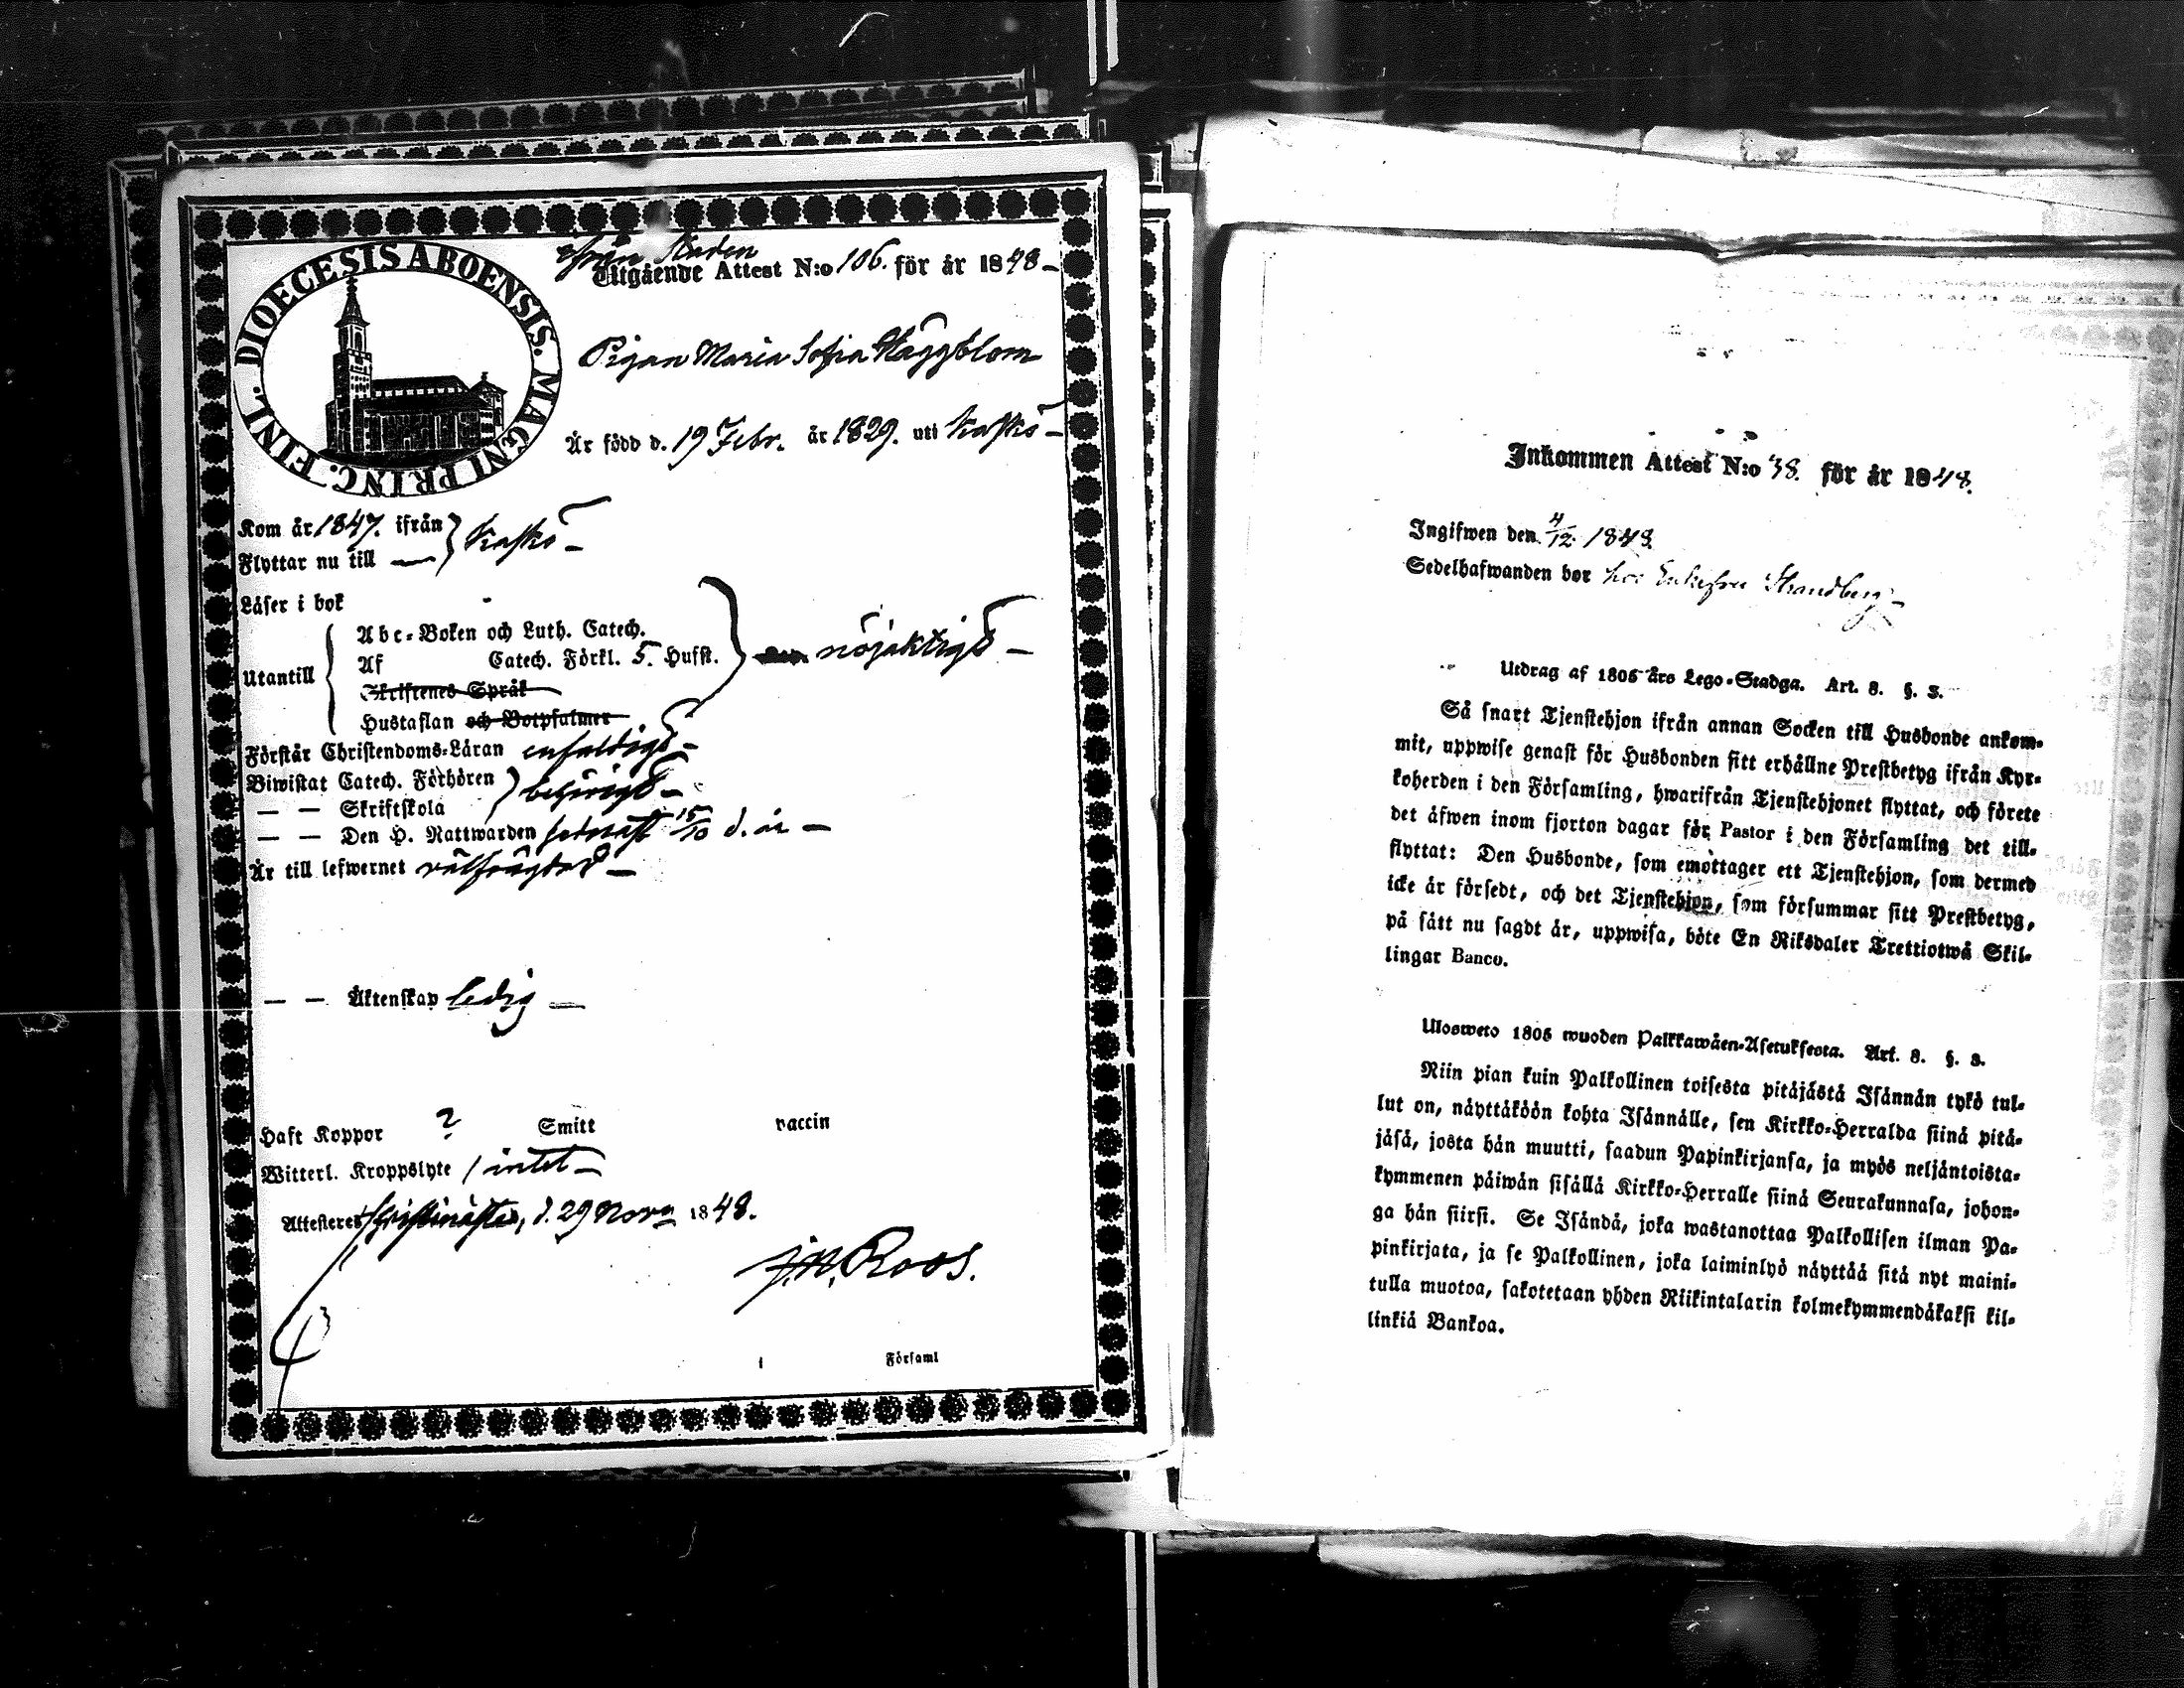 DIOECESIS ABOENSIS. MAGNI PRINC. FINL.
från Staden
Utgående Attest N:o 106. för år 1848 –
Pigan Maria Sofia Häggblom
Är född d. 19 Febr. år 1829. uti Kaskö –
Kom år 1847. ifrån } Kaskö –
Flyttar nu till —
Läser i bok
Utantill { Abc-Boken och Luth. Catech.
Af Catech. Förkl. 5. Hufst. } nöjaktigt –
Skriftenes Språk
Hustaflan och Botpsalmer
Förstår Christendoms-Läran enfaldigt –
Biwistat Catech. Förhören } behörigt –
— — Skriftskola
— — Den H. Nattwarden sednast 15/10 d. år –
Är till lefwernet välfrägdad –
— — Äktenskap ledig —
Haft Koppor ? Smitt vaccin
Witterl. Kroppslyte / intet –
Attesteres Christinæstad, d. 29 Nov. 1848.
J.N. Roos.
i Församl
Inkommen Attest N:o 38. för år 1848.
Ingifwen den 4/12 1848
Sedelhafwanden bor hos Enkefru Strandberg –
Utdrag af 1805 års Lego-Stadga. Art. 8. §. 3.
Så snart Tjenstehjon ifrån annan Socken till Husbonde ankom-
mit, uppwise genast för Husbonden sitt erhållne Prestbetyg ifrån Kyr-
koherden i den Församling, hwarifrån Tjenstehjonet flyttat, och förete
det äfwen inom fjorton dagar för Pastor i den Församling det till-
flyttat: Den Husbonde, som emottager ett Tjenstehjon, som dermed
icke är försedt, och det Tjenstehjon, som försummar sitt Prestbetyg,
på sätt nu sagdt är, uppwisa, böte En Riksdaler Trettiotwå Skil-
lingar Banco.
Ulosweto 1805 wuoden Palkkawäen-Asetuksesta. Art. 8. §. 3.
Niin pian kuin Palkollinen toisesta pitäjästä Isännän tykö tul-
lut on, näyttäköön kohta Isännälle, sen Kirkko-Herralda siinä pitä-
jäsä, josta hän muutti, saadun Papinkirjansa, ja myös neljäntoista-
kymmenen päiwän sisällä Kirkko-Herralle siinä Seurakunnasa, johon-
ga hän siirsi. Se Isändä, joka wastanottaa Palkollisen ilman Pa-
pinkirjata, ja se Palkollinen, joka laiminlyö näyttää sitä nyt maini-
tulla muotoa, sakotetaan yhden Riikintalarin kolmekymmendäkaksi kil-
linkiä Bankoa.